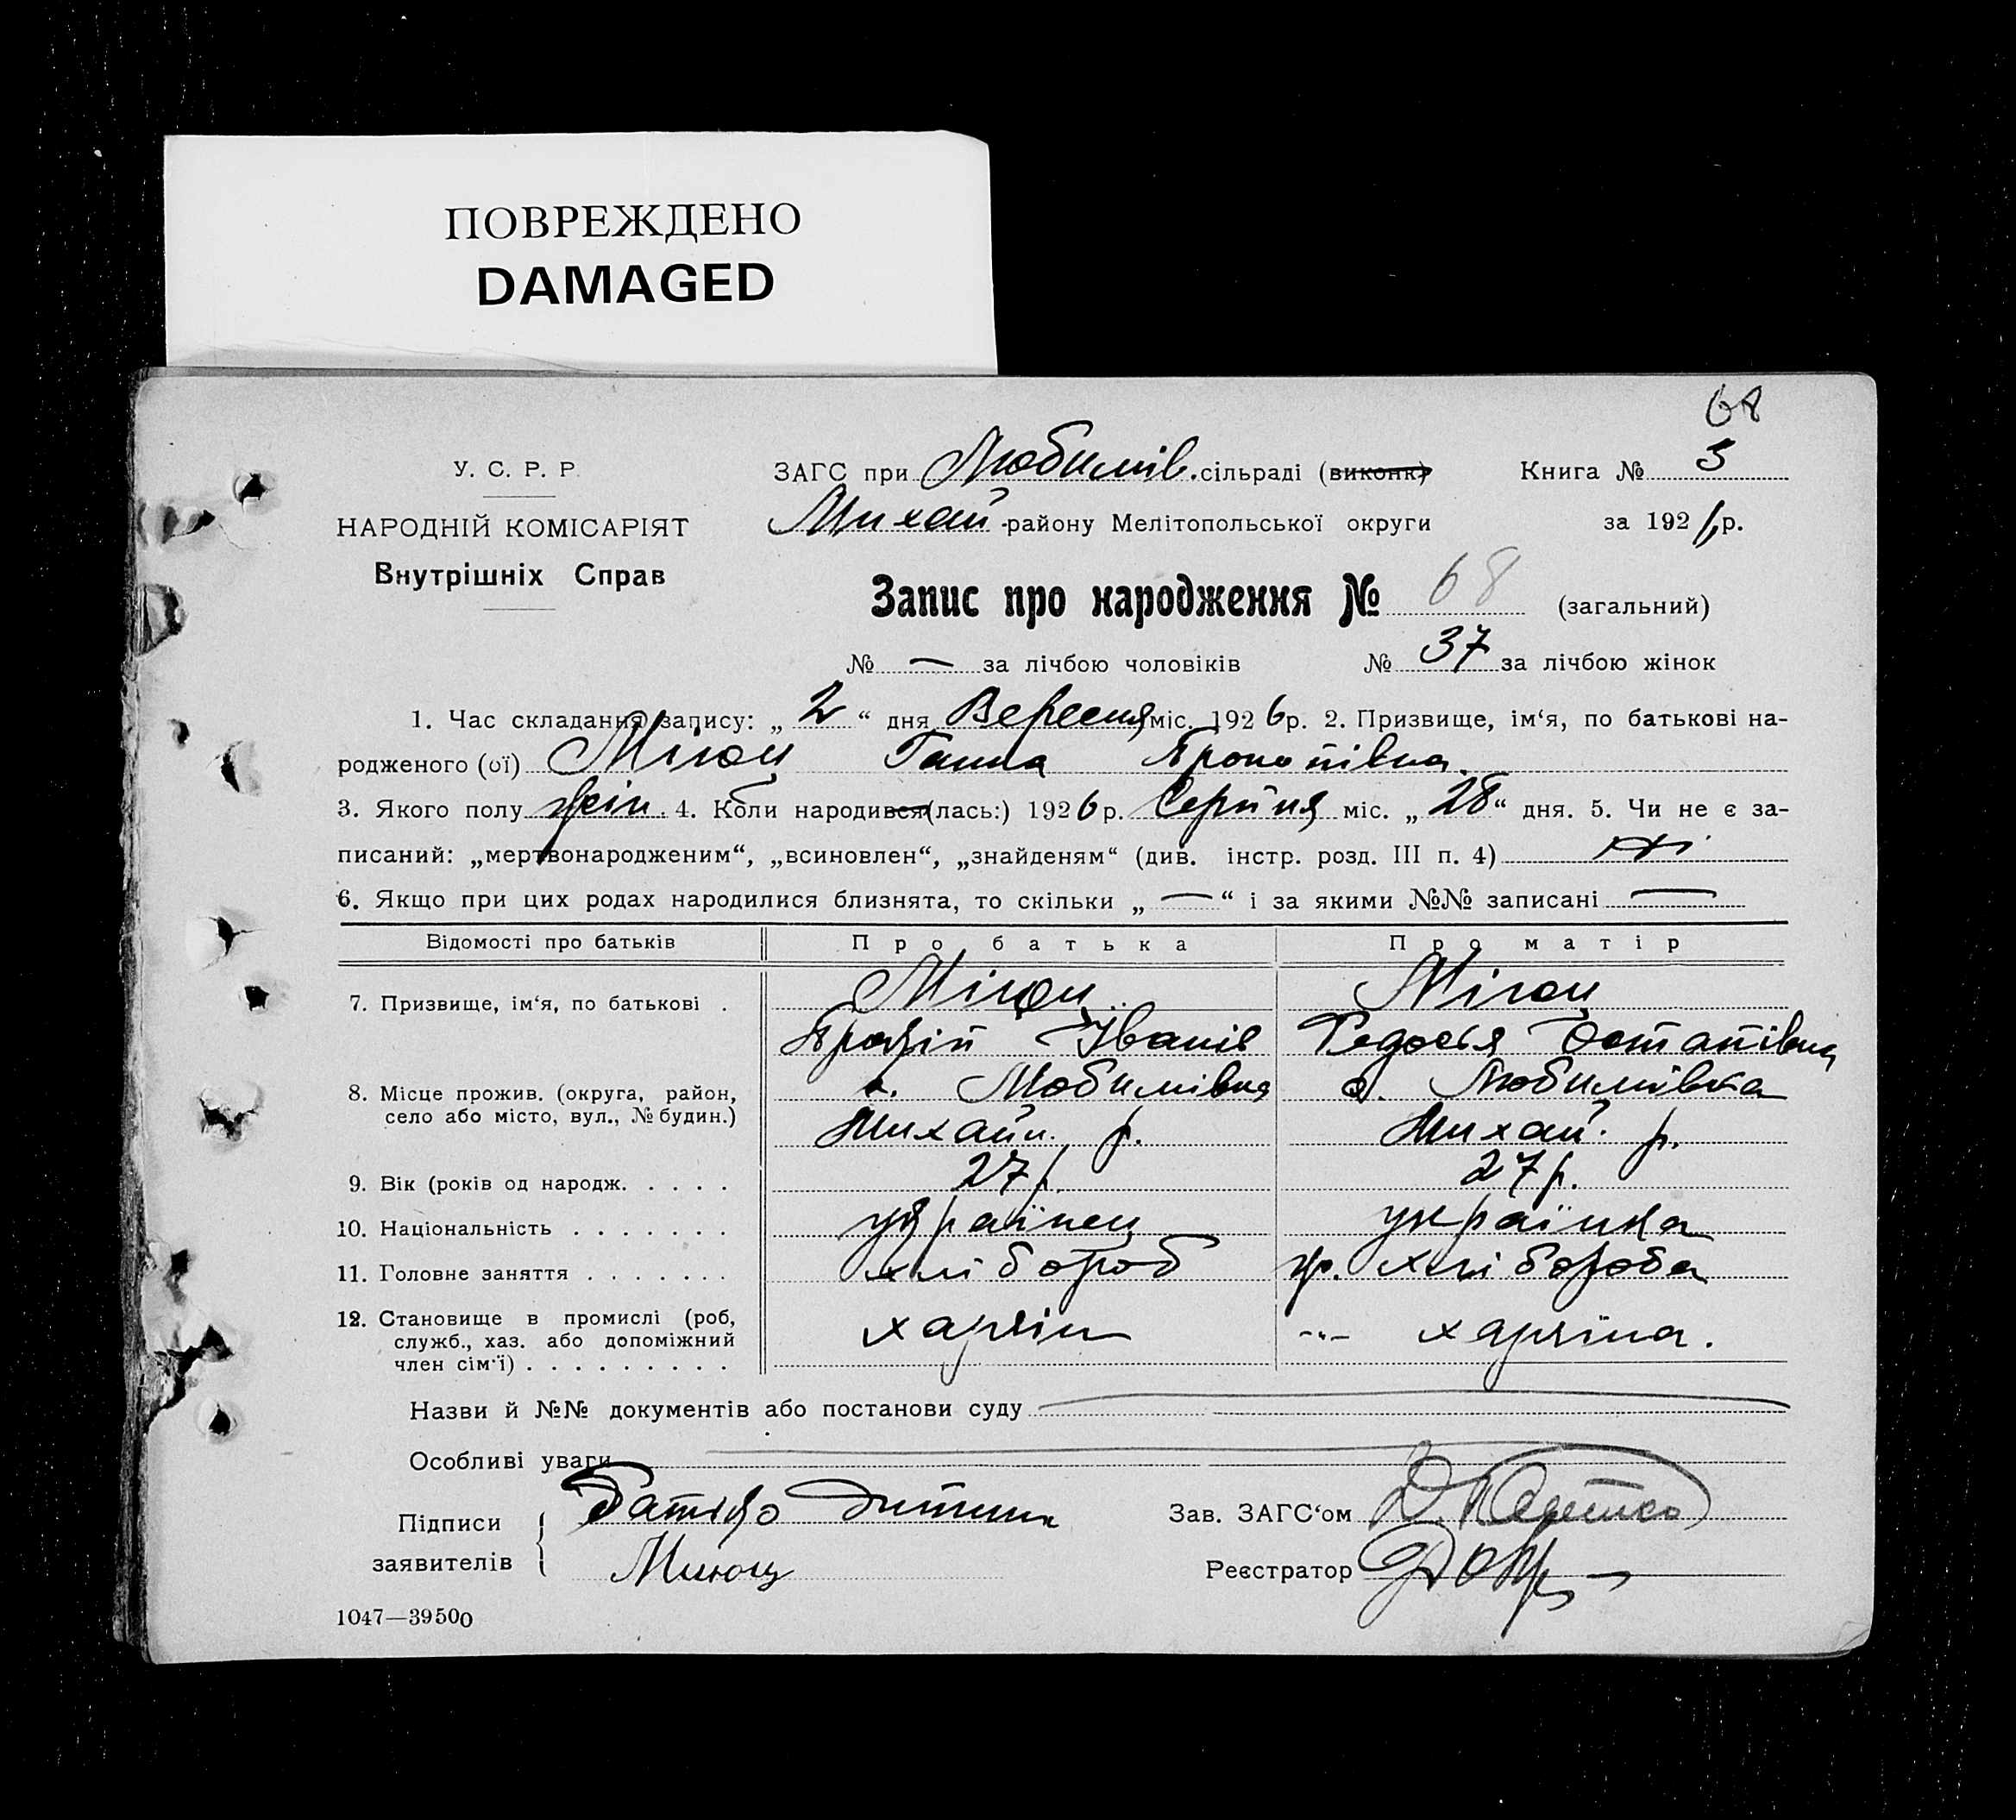 ПОВРЕЖДЕНО
DAMAGED
68
У. С. Р. Р.
НАРОДНІЙ КОМІСАРІЯТ
Внутрішніх Справ
ЗАГС при Любимів. сільраді (виконк) Книга № 3
Михай -району Мелітопольської округи за 1926 р.
Запис про народження № 68 (загальний)
№ — за лічбою чоловіків № 37 за лічбою жінок
1. Час складання запису: „2“ дня Вересня міс. 1926 р. 2. Призвище, ім‘я, по батькові на-
родженого (ої) Ганна Прокопівна.
3. Якого полу жін. 4. Коли народився (лась:) 1926 р. Серпня міс. „28“ дня. 5. Чи не є за-
писаний: „мертвонародженим“, „всиновлен“, „знайденям“ (див. інстр. розд. III п. 4) ні
6. Якщо при цих родах народилися близнята, то скільки „—“ і за якими №№ записані —
Відомості про батьків Про батька Про матір
7. Призвище, ім‘я, по батькові .
Іванів Федосія Остапівна
8. Місце прожив. (округа, район, село або місто, вул., № будин.) с. Любимівка с. Любимівка
Михайл. р. Михай. р.
9. Вік (років од народж. . . . . 27 р. 27 р.
10. Національність . . . . . . . українец українка
11. Головне заняття . . . . . . . хлібороб хлібороба
12. Становище в промислі (роб, служб., хаз. або допоміжний член сім‘ї) . . . . . . . . . хазяїн -"- хазяїна.
Назви й №№ документів або постанови суду —
Особливі уваги —
Підписи заявителів { Батько дитини
Зав. ЗАГС‘ом
Реєстратор
1047—39500